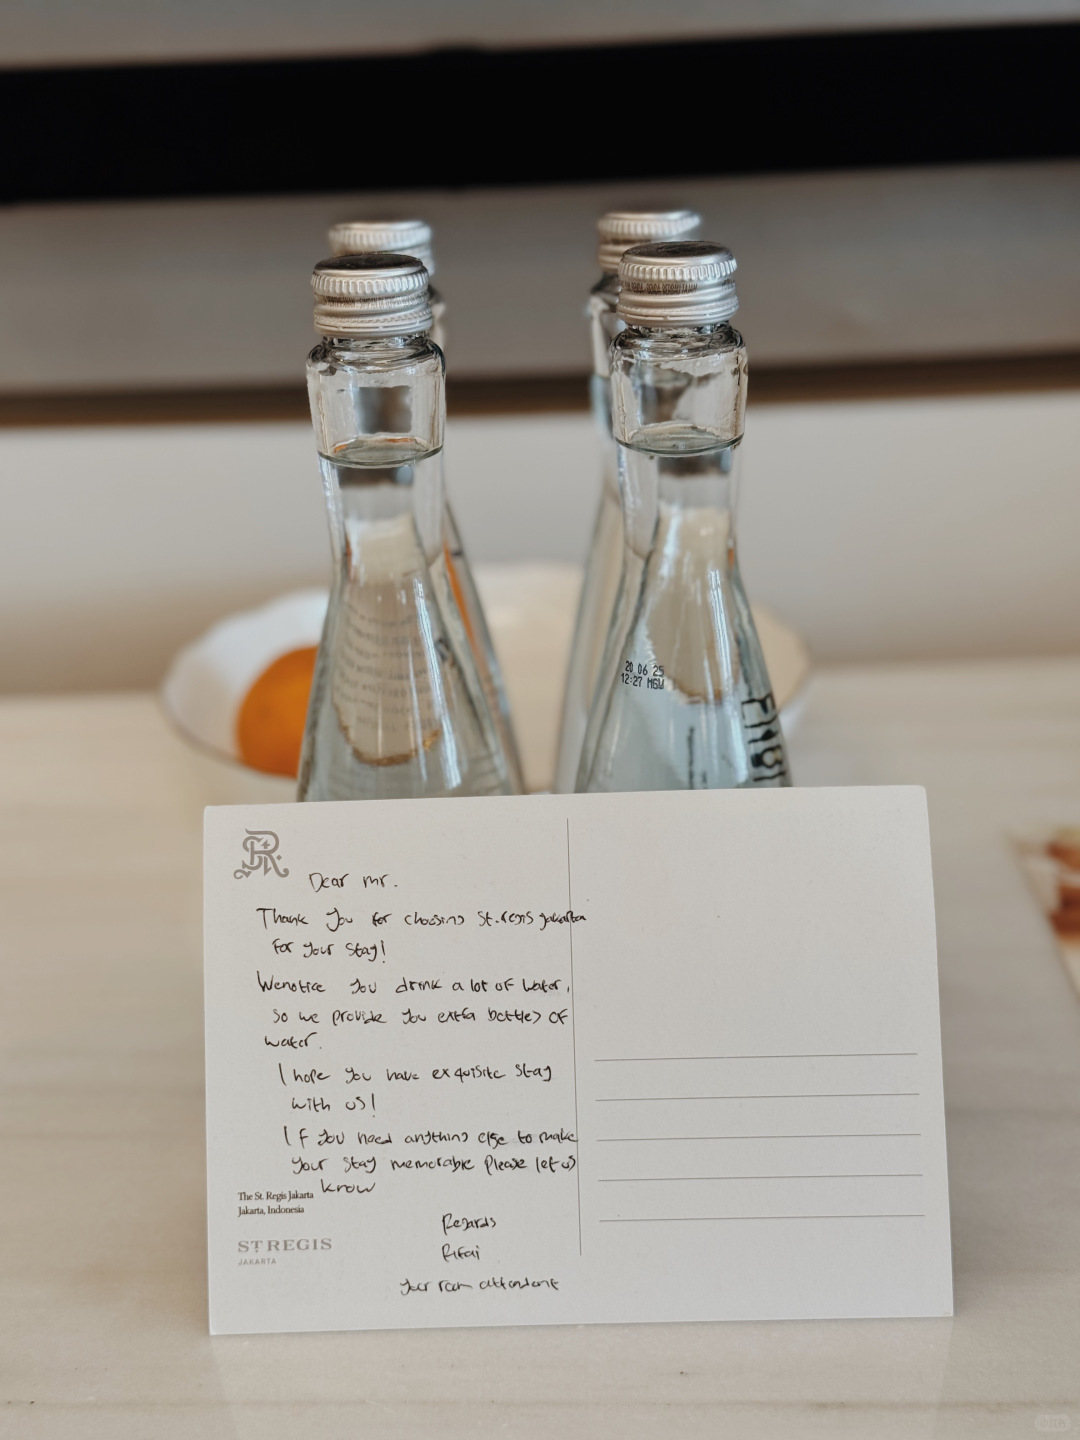 20 06 25
12:27 MGW
Dear mr.
Thank you for choosing St. regis jakarta
for your stay!
We notice you drink a lot of water,
so we provide you extra bottles of
water.
I hope you have exquisite stay
with us!
If you need anything else to make
your stay memorable please let us
know
The St. Regis Jakarta
Jakarta, Indonesia
ST REGIS
JAKARTA
Regards
Rifai
your room attendant